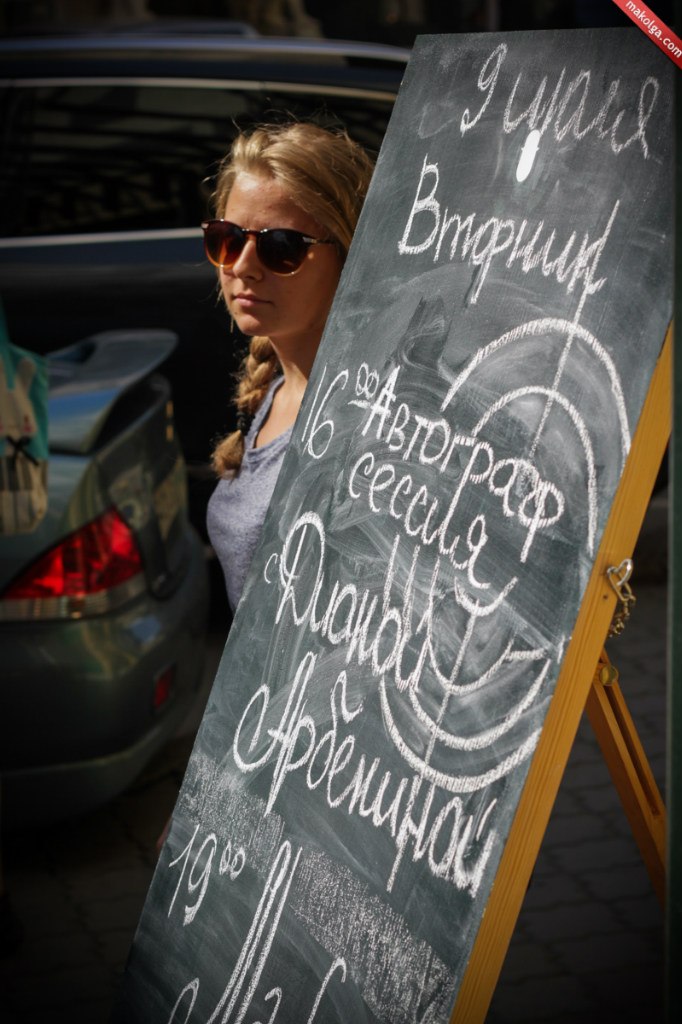 makolga.com
9 мая
Вторник
16 00 Автограф
сессия
с Дианой
Арбениной
19 00